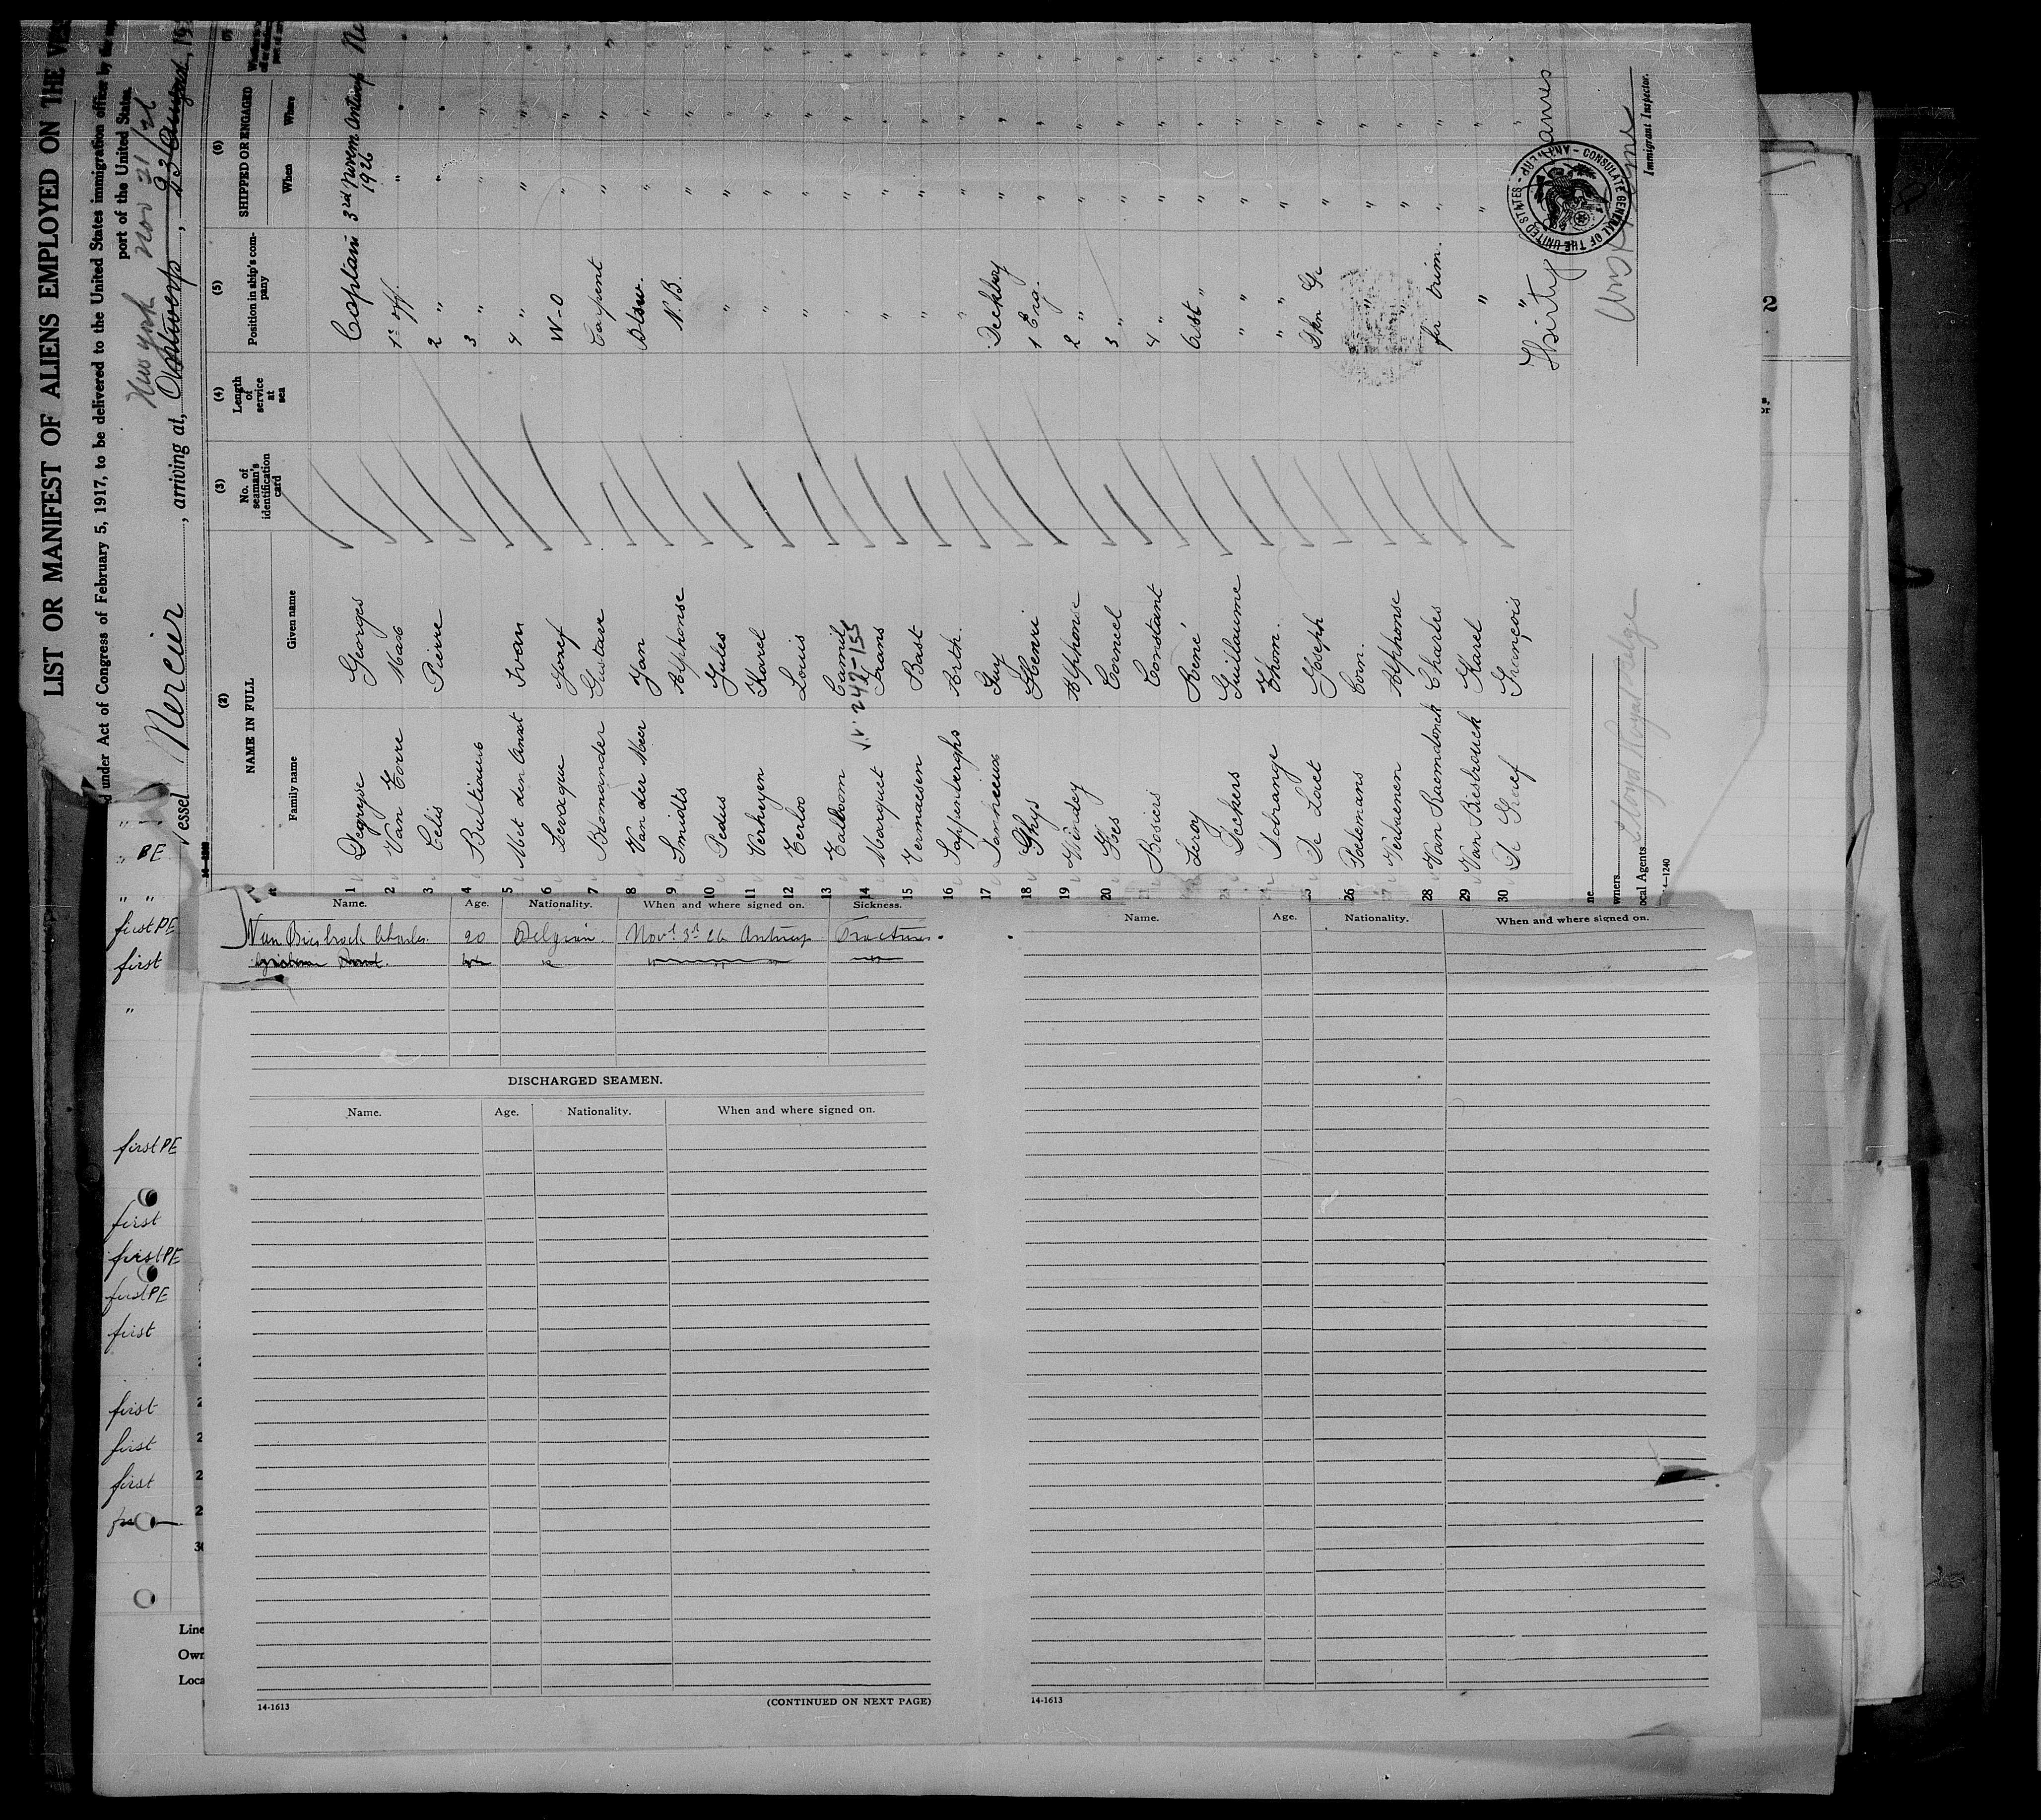 LIST OR MANIFEST OF ALIENS EMPLOYED ON THE
under Act of Congress of February 5, 1917, to be delivered to the United States immigration officer by the
port of the United States.
New York Nov 21/26
Vessel Mercier, arriving at, Antwerp, 23 August, 19
(2) (3) (4) (5) (6)
NAME IN FULL No. of seaman's identification card Length of service at sea Position in ship's company SHIPPED OR ENGAGED
Family name Given name When Where
1 Degryse Georges Captain 3rd Novem Antwerp
1926
2 Van Torre Marc 1st off. " "
3 Celis Pierre 2 " " "
4 Bultiauw 3 " " "
5 Met den Anxt Ivan 4 " " "
6 Josef W-O " "
7 Blomander Gustave Carpent " "
8 Van der Meer Jan Btsw. " "
9 Smidts Alphonse " "
10 Pedus Jules " " "
11 Verheyen Karel " " "
12 Terloo Louis " " "
13 Camil " "
249-155
14 Marquet Frans " " "
15 Vermaesen Bast " " "
16 Arth. " " "
17 Guy Deckboy " "
18 Ghys Henri 1 Eng. " "
19 Windey Alphonse 2 " " "
20 Goes Corneel 3 " " "
Bosiers Constant 4 " " "
Leroy René Asst " " "
Deckers Guillaume " " "
Thom. " " "
25 De Laet Joseph " "
26 Paelemans Corn. " "
27 Verbaenen Alphonse " "
28 Van Raemdonck Charles trim. " "
29 Van Biesbrouck Karel " " "
30 De Graef François " "
Thirty names
CONSULATE GENERAL OF THE UNITED STATES - ANTWERP -
Immigrant Inspector.
Local Agents Lloyd Royal Belge
14—1240
BE
" "
first PE
first
"
first PE
first
first PE
first PE
first
first
first
first
Line
Own
Loca
30
Name. Age. Nationality. When and where signed on. Sickness.
Van Biesbrock Charles. 20 Belgian. Nov. 3d 26 Antwerp Fracture.
DISCHARGED SEAMEN.
Name. Age. Nationality. When and where signed on.
14-1613 (CONTINUED ON NEXT PAGE)
Name. Age. Nationality. When and where signed on.
14-1613
2